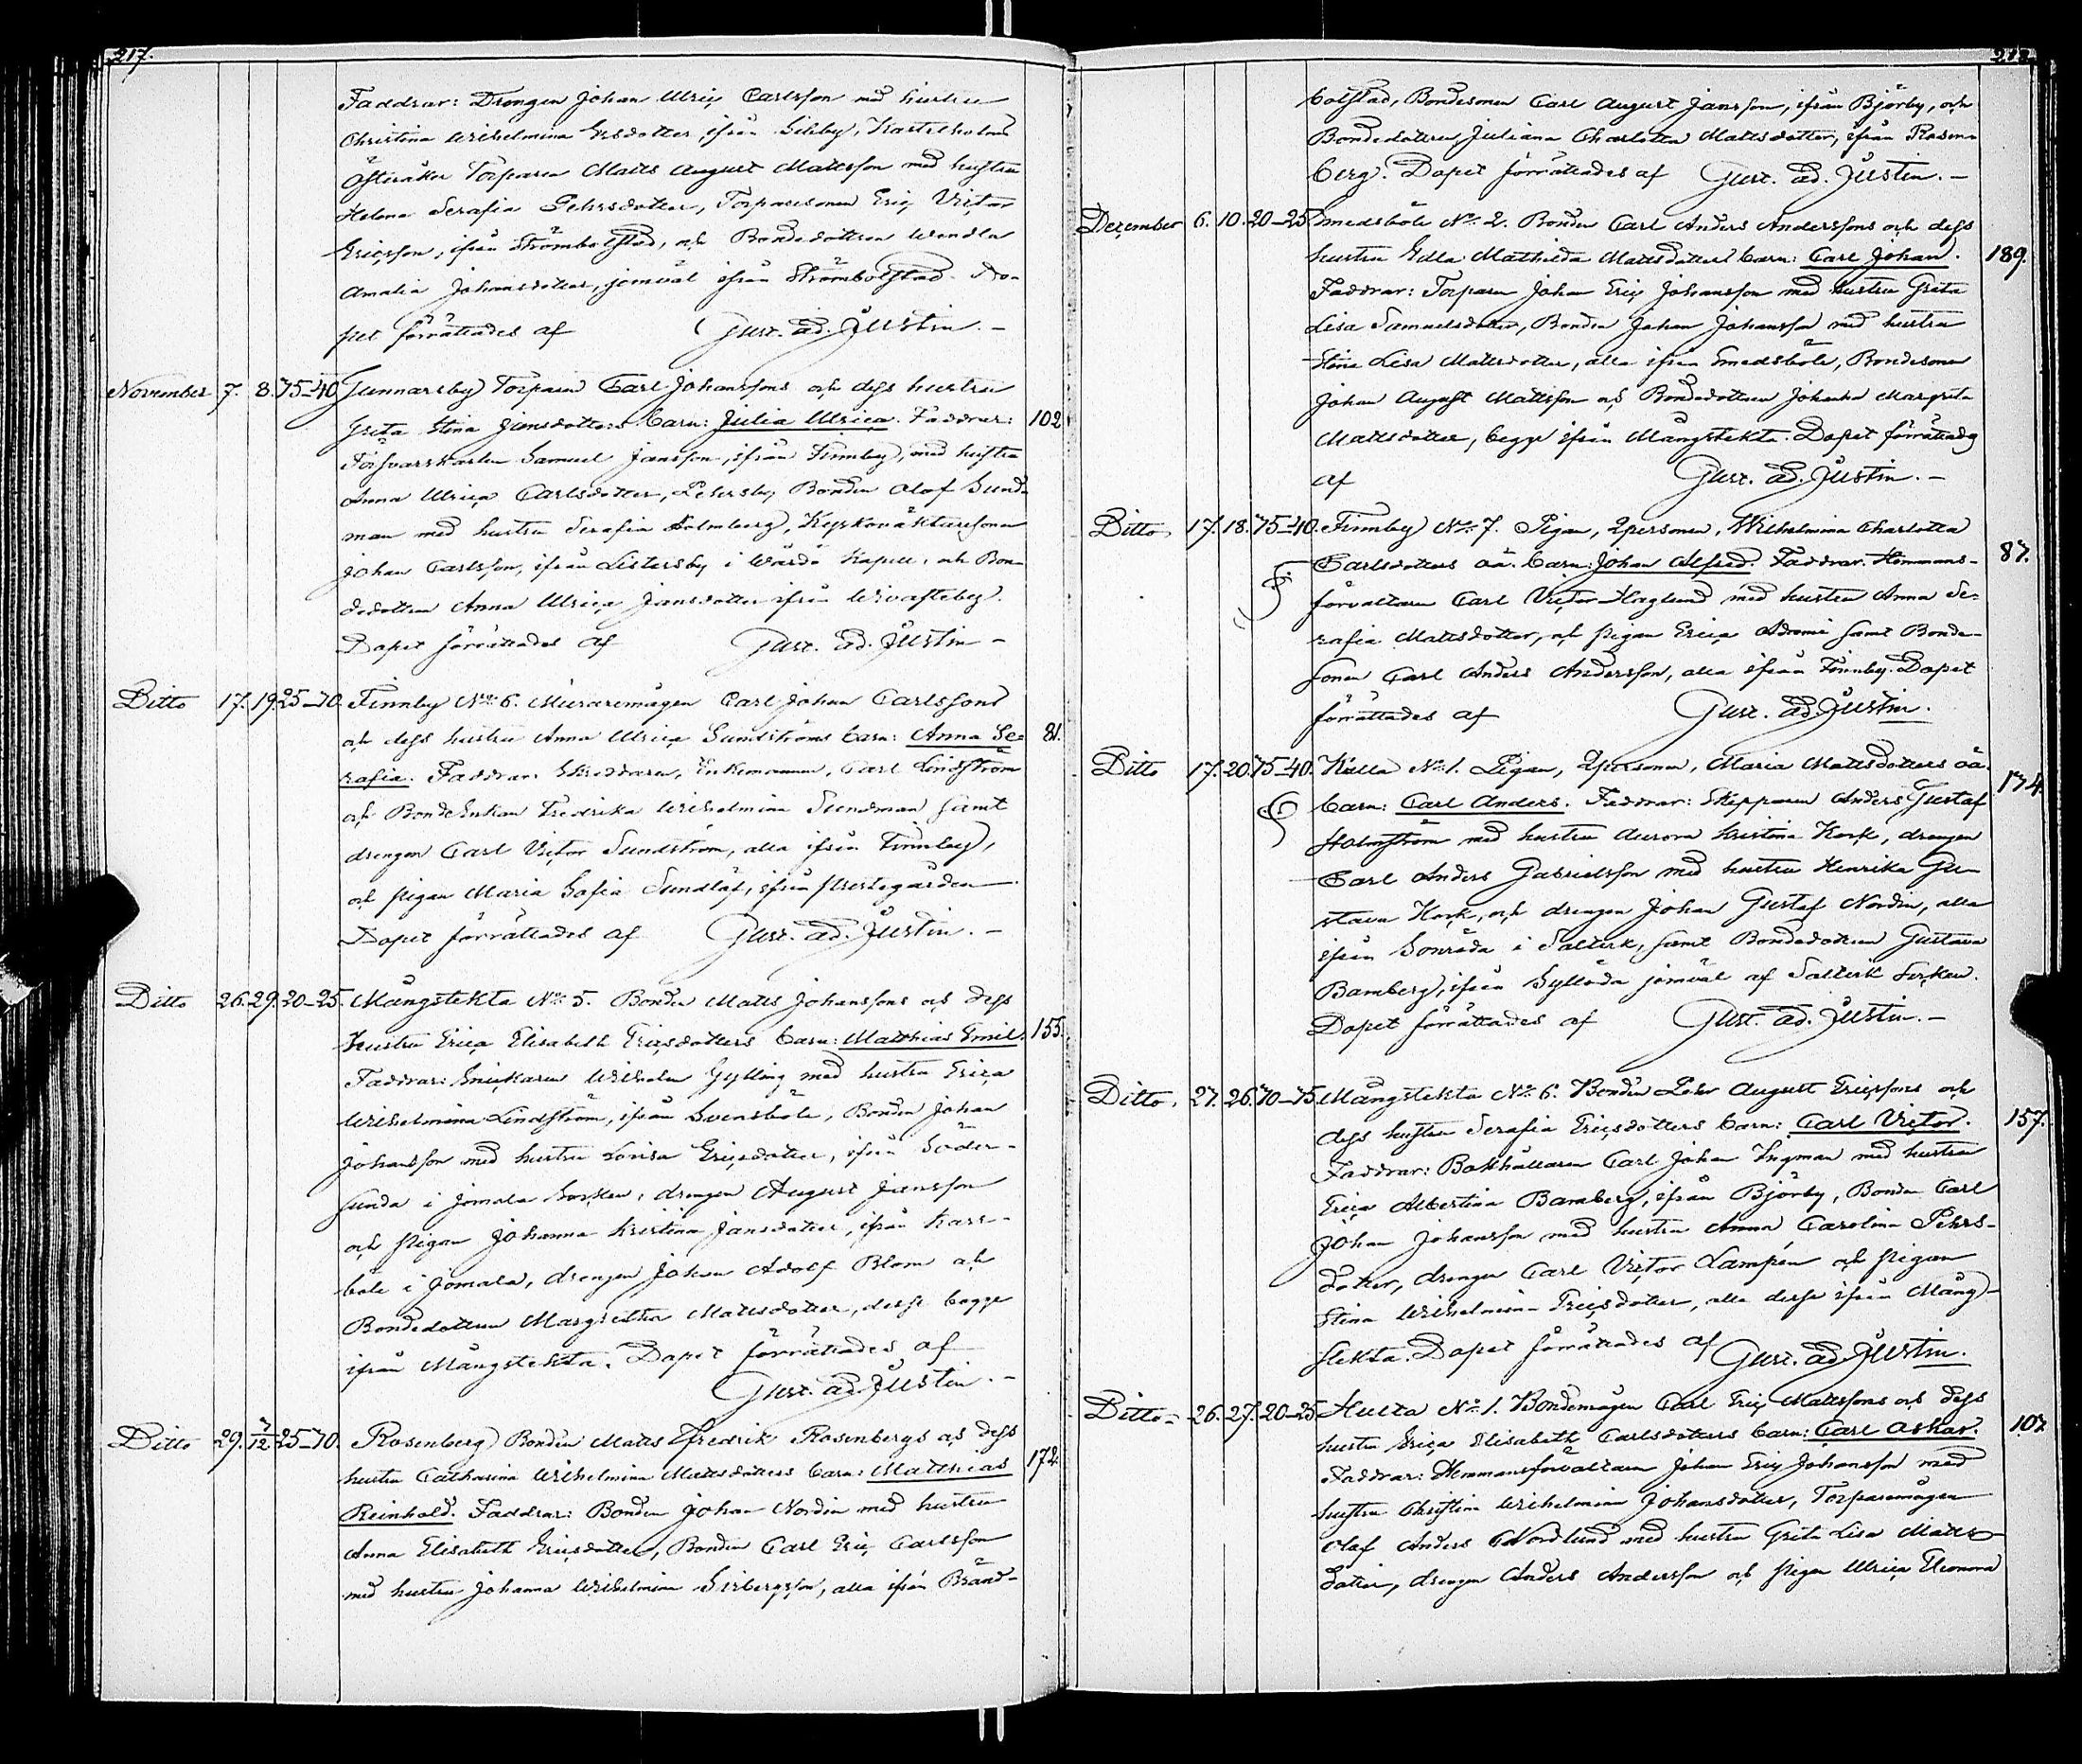 217.
Faddrar: Drengen Johan Ulric Carlsson med hustru
Christina Wilhelmina Ersdotter, ifrån
Torparen Matts August Mattsson med hustru
Helena Serafia Pehrsdotter, Torparesonen Eric Victor
Ericsson, ifrån Strömbolstad, och Bondedottren Wendla
Amalia Johansdotter, jemväl ifrån Strömbolstad. Do-
pet förrättades af Gust. Ad. Justin.
November 7. 8. 35-40 Gunnarsby Torparen Carl Johanssons och dess hustru
Greta Stina Jansdotters Barn: Julia Ulrica. Faddrar: 102
Försvarskarlen Samuel Jansson, ifrån Finnby, med hustru
Anna Ulrica Carlsdotter, Bonden Olof Sund-
man med hustru Serafia Holmberg,
Johan Carlsson, ifrån Listersby i Wårdö Kapell, och Bon-
dedottren Anna Ulrica Jansdotter ifrån Wivasteby.
Dopet förrättades af Gust. Ad. Justin
Ditto 17. 19. 25-30. Finnby No 6. Muraremågen Carl Johan Carlssons
och dess hustru Anna Ulrica Sundströms Barn: Anna Se- 81.
rafia. Faddrar: Skräddaren, Enkemannen, Carl Lindström
och BondeEnkan Fredrika Wilhelmina Sundman samt
drengen Carl Victor Sundström, alla ifrån Finnby,
och pigan Maria Sofia Sundlöf, ifrån Prestegården
Dopet förrättades af Gust. Ad. Justin.
Ditto 26. 29. 20-25. Mångstekta No 5. Bonden Matts Johanssons och dess
Hustru Erica Elisabeth Ericsdotters Barn: Matthias Emil. 155.
Faddrar: Snickaren Wilhelm Gylling med hustru Erica
Wilhelmina Lindström, ifrån Svensböle, Bonden Johan
Johansson med hustru Lovisa Ericsdotter, ifrån Söder-
sunda i Jomala Socken, drengen August Jansson
och pigan Johanna Kristina Jansdotter, ifrån Karr-
böle i Jomala, drengen Johan Adolf Blom och
Bondedottren Margretha Mattsdotter, desse begge
ifrån Mångstekta. Dopet förrättades af
Gust. Ad. Justin.
Ditto 29. 3/12 25-30. Rosenberg Bonden Matts Fredrik Rosenbergs och dess
hustru Catharina Wilhelmina Mattsdotters Barn: Matthias 172.
Reinhold. Faddrar: Bonden Johan Nordin med hustru
Anna Elisabeth Ericsdotter, Bonden Carl Eric Carlsson
med hustru Johanna Wilhelmina alla ifrån Bränd-
bolstad, Bondesonen Carl August Jansson, ifrån Björby, och
Bondedottren Juliana Charlotta Mattsdotter, ifrån Rosen-
berg. Dopet förrättades af Gust. Ad. Justin.
December 6. 10. 20-25. Smedsböle No 2. Bonden Carl Anders Anderssons och dess
hustru Edla Mathilda Mattsdotters Barn: Carl Johan. 189.
Faddrar: Torparen Johan Eric Johansson med hustru Greta
Lisa Samuelsdotter, Bonden Johan Johansson med hustru
Stina Lisa Mattsdotter, alla ifrån Smedsböle, Bondesonen
Johan August Mattsson och Bondedottren Johanna Margreta
Mattsdotter, begge ifrån Mångstekta. Dopet förrättades
af Gust. Ad. Justin.
Ditto 17. 18. 35-40. Finnby No 7. Pigan, Wilhelmina Charlotta
Carlsdotters oä. Barn: Johan Alfred. Faddrar: Hemmans- 87.
förvaltaren Carl Victor Haglund med hustru Anna Se-
rafia Mattsdotter, och pigan Erica samt Bonde-
sonen Carl Anders Andersson, alla ifrån Finnby. Dopet
förrättades af Gust. Ad. Justin.
Ditto 17. 20. 35-40. Kulla No 1. Pigan, Maria Mattsdotters oä.
Barn: Carl Anders. Faddrar: Skepparen Anders Gustaf 174.
Holmström med hustru Aurora Kristina Kock, drengen
Carl Anders Gabrielsson med hustru Henrika Gu-
stava Kock, och drengen Johan Gustaf Nordin, alla
ifrån Sonröda i Saltvik, samt Bondedottren Gustava
Bamberg, ifrån Syllöda jemväl af Saltvik Socken.
Dopet förrättades af Gust. Ad. Justin.
Ditto. 27. 26. 30-35 Mångstekta No 6. Bonden Pehr August Ericssons och
dess hustru Serafia Ericsdotters Barn: Carl Victor. 157.
Faddrar: Bokhållaren Carl Johan Ingman med hustru
Erica Albertina Bamberg, ifrån Björby, Bonden Carl
Johan Johansson med hustru Anna Carolina Pehrs-
dotter, drengen Carl Victor Lampén och pigan
Stina Wilhelmina Ericsdotter, alla desse ifrån Mång-
stekta. Dopet förrättades af Gust. Ad. Justin.
Ditto 26. 27. 20-25 Hulta No 1. Bondemågen Carl Eric Mattssons och dess
hustru Erica Elisabeth Carlsdotters Barn: Carl Oskar. 107
Faddrar: Hemmansförvaltaren Johan Eric Johansson med
hustru Christina Wilhelmina Johansdotter, Torparemågen
Olof Anders Nordlund med hustru Greta Lisa Matts-
dotter, drengen Anders Andersson och pigan Ulrica Eleonora